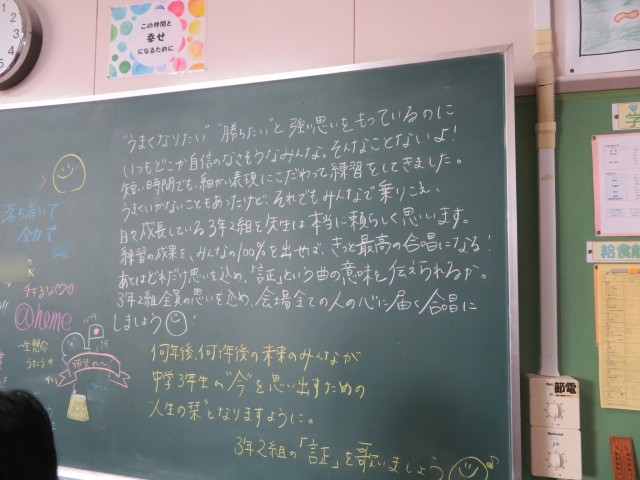 この仲間と
幸せ
になるために
"うまくなりたい" "勝ちたい"と強い思いをもっているのに
いつもどこか自信のなさそうなみんな。そんなことないよ！
短い時間でも、細かい表現にこだわって練習をしてきました。
うまくいかないこともあったけど、それでもみんなで乗りこえ、
日々成長している3年2組を先生は本当に頼もしく思います。
練習の成果を、みんなの100%を出せば、きっと最高の合唱になる！
あとはどれだけ思いを込め、「証」という曲の意味を伝えられるか。
3年2組全員の思いを込め、会場全ての人の心に届く合唱に
しましょう！
何年後、何十年後の未来のみんなが
中学3年生の"今"を思い出すための
人生の栞となりますように。
3年2組の「証」を歌いましょう♪
落ち着いて
全力で
@home
一生懸命
うたう
学
給食
節電